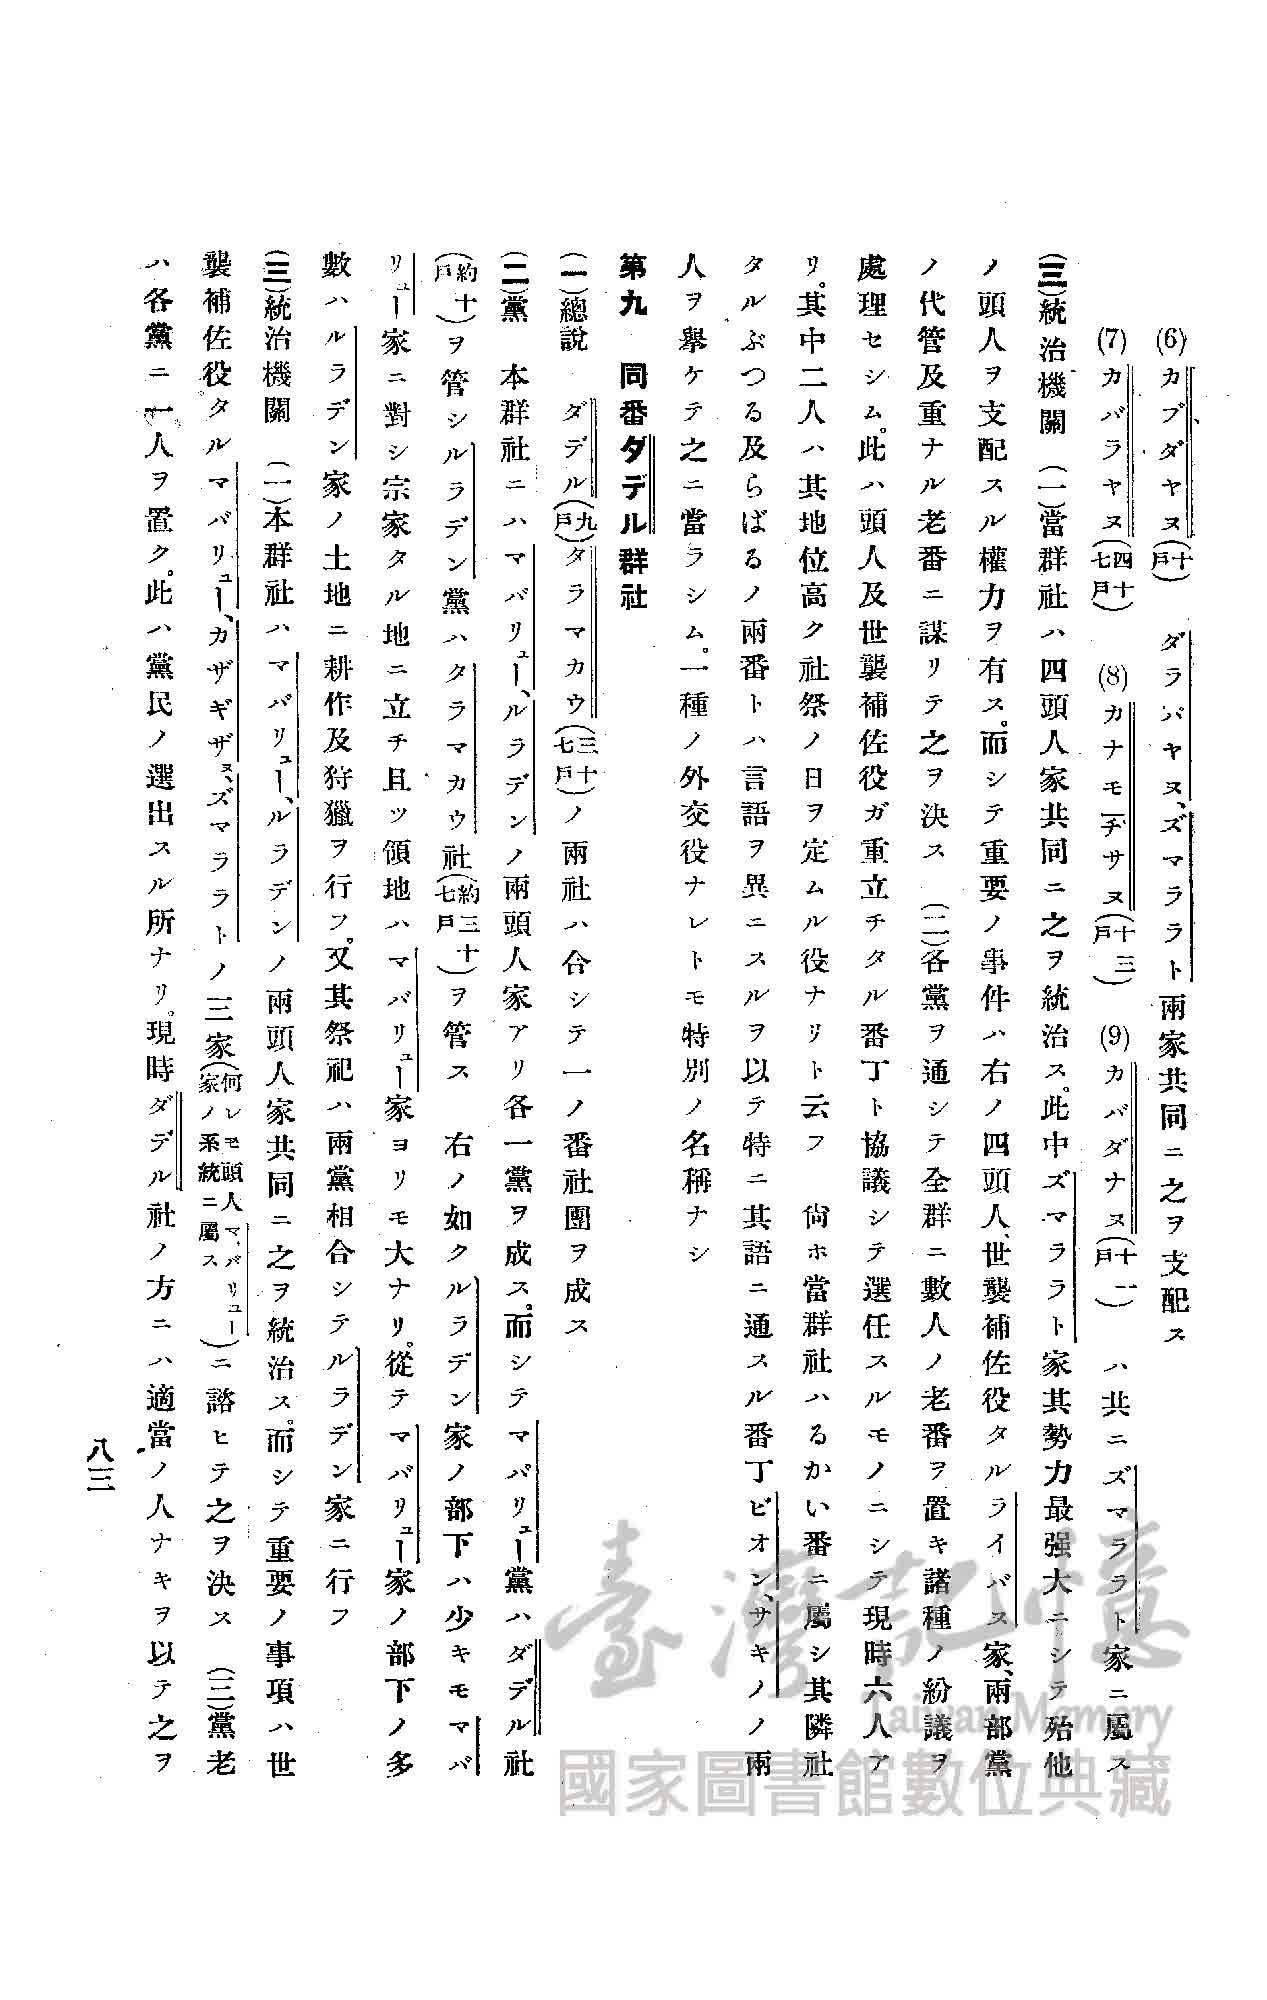 (6)カブダヤヌ(十戶) ダラパヤヌ、ズマララト兩家共同ニ之ヲ支配ス
(7)カバラヤヌ(四十七戶) (8)カナモヂサヌ(十三戶) (9)カバダナヌ(十一戶) ハ共ニズマララト家ニ屬ス
(三)統治機關 (一)當群社ハ四頭人家共同ニ之ヲ統治ス。此中ズマララト家其勢力最强大ニシテ殆他
ノ頭人ヲ支配スル權力ヲ有ス。而シテ重要ノ事件ハ右ノ四頭人、世襲補佐役タルライバス家、兩部黨
ノ代管及重ナル老番ニ謀リテ之ヲ決ス (二)各黨ヲ通シテ全群ニ數人ノ老番ヲ置キ諸種ノ紛議ヲ
處理セシム。此ハ頭人及世襲補佐役ガ重立チタル番丁ト協議シテ選任スルモノニシテ現時六人ア
リ。其中二人ハ其地位高ク社祭ノ日ヲ定ムル役ナリト云フ 尙ホ當群社ハるかい番ニ屬シ其隣社
タルぶつる及らばるノ兩番トハ言語ヲ異ニスルヲ以テ特ニ其語ニ通スル番丁ビオン、サキノノ兩
人ヲ擧ケテ之ニ當ラシム。一種ノ外交役ナレトモ特別ノ名稱ナシ
第九 同番ダデル群社
(一)總說 ダデル(九戶)タラマカウ(三十七戶)ノ兩社ハ合シテ一ノ番社團ヲ成ス
(二)黨 本群社ニハマバリュー、ルラデンノ兩頭人家アリ各一黨ヲ成ス。而シテマバリュー黨ハダデル社
(約十戶)ヲ管シルラデン黨ハタラマカウ社(約三十七戶)ヲ管ス 右ノ如クルラデン家ノ部下ハ少キモマバ
リュー家ニ對シ宗家タル地ニ立チ且ツ領地ハマバリュー家ヨリモ大ナリ。從テマバリュー家ノ部下ノ多
數ハルラデン家ノ土地ニ耕作及狩獵ヲ行フ。又其祭祀ハ兩黨相合シテルラデン家ニ行フ
(三)統治機關 (一)本群社ハマバリュー、ルラデンノ兩頭人家共同ニ之ヲ統治ス。而シテ重要ノ事項ハ世
襲補佐役タルマバリュー、カザギザヌ、ズマララトノ三家(何レモ頭人マバリュー家ノ系統ニ屬ス)ニ諮ヒテ之ヲ決ス (二)黨老
ハ各黨ニ一人ヲ置ク。此ハ黨民ノ選出スル所ナリ。現時ダデル社ノ方ニハ適當ノ人ナキヲ以テ之ヲ
八三
臺灣記憶
Taiwan Memory
國家圖書館數位典藏